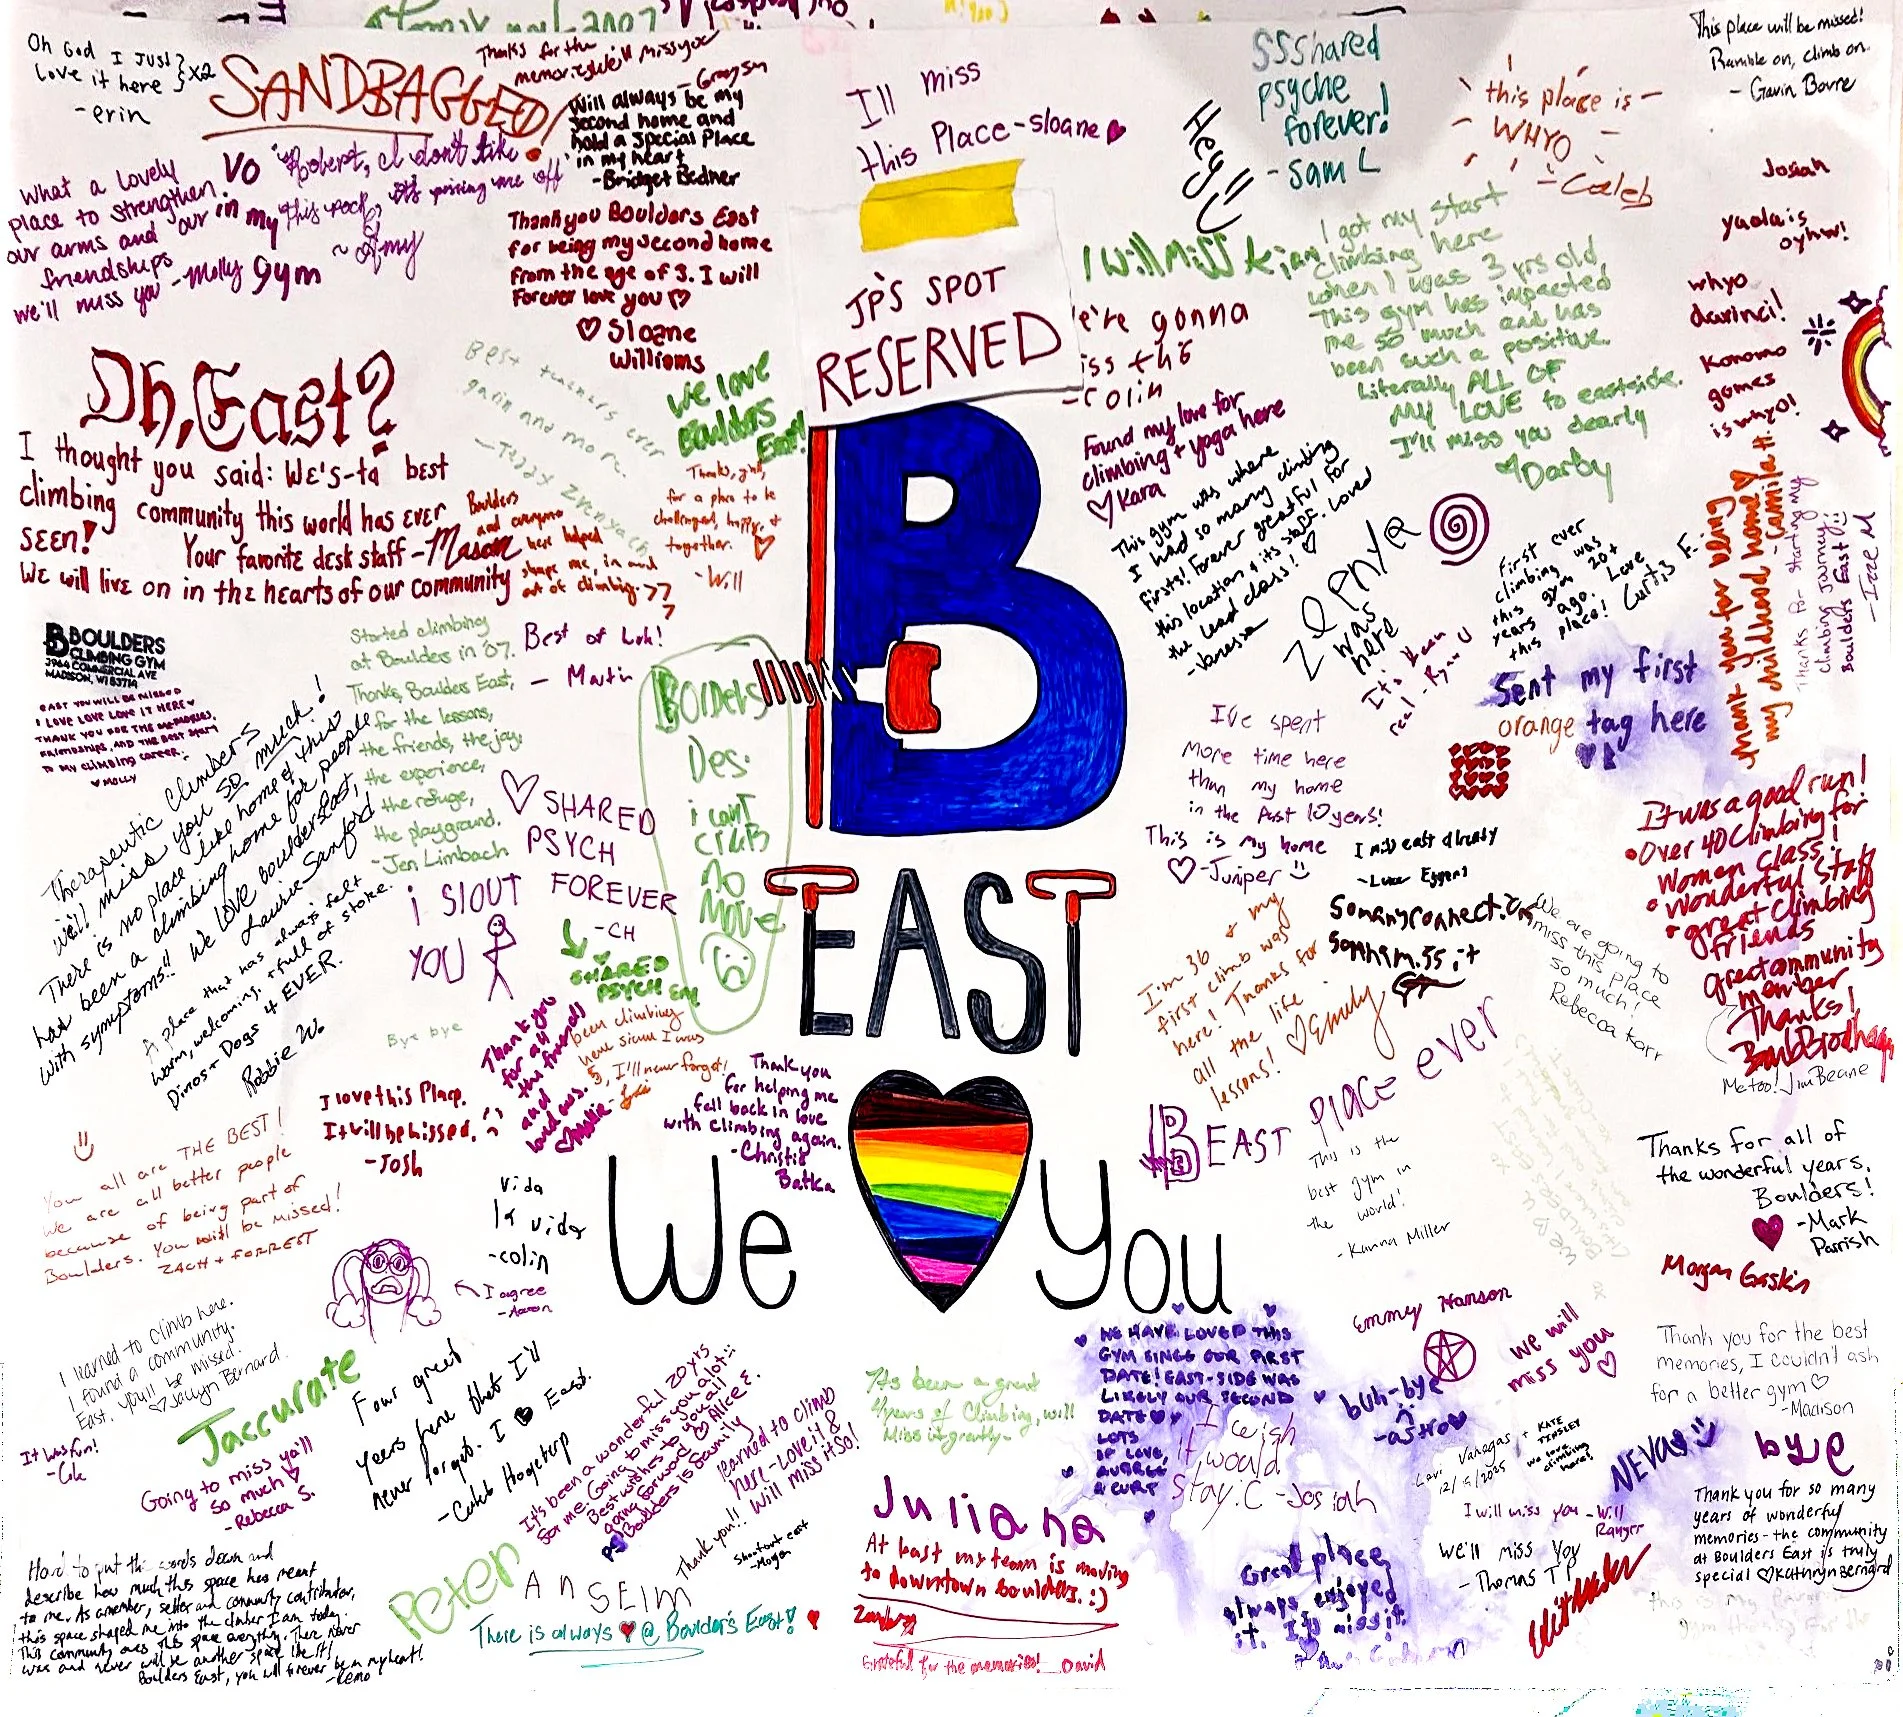 Oh God I Just
love it here } x2
- erin
SANDBAGGED!
Thanks for the
memories we'll miss you
- Greysen
Will always be my
second home and
hold a special place
in my heart
- Bridget Bedner
I'll miss
this Place - sloane
SSShared
psyche
forever!
- Sam L
Hey
this place is
WHYO
- Caleb
This place will be missed!
Ramble on, climb on.
- Gavin Bovre
What a lovely
place to strengthen
our arms and our
friendships
we'll miss you - Molly
VO
in my
gym
Robert, I don't like
this rock, it's pissing me off
~ Amy
Thank you Boulders East
for being my second home
from the age of 3. I will
Forever love you ♡
♡ Sloane
Williams
JP'S SPOT
RESERVED
I Will Miss
e're gonna
iss this
- Colin
I got my start
climbing here
when I was 3 yrs old
This gym has impacted
me so much and has
been such a positive.
Literally ALL OF
MY LOVE to eastside.
I'll miss you dearly
♡ Darby
Josiah
yaola is
oyhw!
whyo
davinci!
Konomo
gomes
is whyO!
Oh, East?
I thought you said: We's-ta best
climbing community this world has ever
seen!
Your favorite desk staff - Mason
We will live on in the hearts of our community
Best teachers ever
garin and more.
We love
Boulders
East!
Boulders
and everyone
here helped
shape me, in and
out of climbing. >77
Thanks, y'all,
for a place to be
challenged, happy, +
together.
- Will
Found my love for
climbing + yoga here
♡ Kara
This gym was where
I had so many climbing
firsts! Forever greatful for
this location & its staff. Loved
the lead class! ♡
- Vanessa
was
here
It's been
real - Ryan
First ever
climbing was
this gym 20+
years ago. Love
this place! Curtis F.
Sent my first
orange tag here
Thank you for being
my childhood home ♡
- Camila H
Thanks for starting my
climbing journey
Boulders East
- Izze M
B BOULDERS
CLIMBING GYM
3964 COMMERCIAL AVE
MADISON, WI 53714
EAST YOU WILL BE MISSED
I LOVE LOVE LOVE IT HERE ♥
THANK YOU FOR THE MEMORIES,
FRIENDSHIPS, AND THE BEST START
TO MY CLIMBING CAREER.
♥ MOLLY
Started climbing
at Boulders in '07.
Thanks, Boulders East,
for the lessons,
the friends, the joy,
the experience,
the refuge,
the playground.
- Jen Limbach
Best of Luk!
- Martin
Bolders
Des.
i cant
no
move
B
EAST
We ♥ You
♡ SHARED
PSYCH
FOREVER
- CH
SHARED
PSYCH
I've spent
more time here
than my home
in the past 10 years!
This is my home
♡ - Juniper
I miss east already
- Luke Eggers
It was a good run!
• Over 40 Climbing for
Women Class!
• Wonderful Staff
+ great Climbing
friends
Great community
member
Thanks!
Me too! Jim Beane
Therapeutic Climbers
will miss you SO much!
There is no place like home & this
has been a climbing home for people
with symptoms!! We LOVE Boulders East,
Laurie Sanford
A place that has always felt
warm, welcoming, + full of stoke.
Dinos + Dogs 4 EVER.
Robbie W.
YOU
Bye bye
Thank you
for all
the friends
and
loud ows.
been climbing
here since I was
5, I'll never forget!
I love this Place.
It will be missed.
- Josh
Thank you
for helping me
fall back in love
with climbing again.
- Christie
Batka
I'm 36 & my
first climb was
here! Thanks for
all the life
lessons! ♡ Emily
We are going to
miss this place
so much!
Rebecca Karr
BEAST PLACE EVER
This is the
best gym in
the world!
- Kanna Miller
Thanks for all of
the wonderful years,
Boulders!
♥ - Mark
Parrish
Morgan Gaskin
You all are THE BEST!
We are all better people
because of being part of
Boulders. You will be missed!
ZACH + FORREST
Vida
la vida
- colin
I agree
- Aaron
I learned to climb here.
I found a community.
East, you'll be missed.
♡ Jaclyn Bernard
Jaccurate
Four great
years here that I'll
never forget. I ♥ East.
- Caleb Hogeterp
It was fun!
- Cole
Going to miss ya'll
so much ♡
- Rebecca S.
It's been a wonderful 20 yrs
for me. Going to miss you alot
Best wishes to you all
going forward ♡ Alice E.
PS Boulders is family
learned to climb
here - Love it &
Will miss it so!
Thank you!!
Shoutout east
- Morgan
It's been a great
4 years of Climbing, will
Miss it greatly -
WE HAVE LOVED THIS
GYM SINCE OUR FIRST
DATE! EAST-SIDE WAS
LIKELY OUR SECOND
DATE ♥♥
LOTS
OF LOVE,
AUBREE
& CURT
I wish
it would
stay. :( - Josiah
Emmey Hanson
We will
miss you
♡
buh-bye
- astro
Thank you for the best
memories, I couldn't ask
for a better gym ♡
- Madison
Lori Vanegas +
12/19/2025
KATE
TINSLEY
we love
climbing
here!
NEVAS
bye
I will miss you - Will
Ranger
We'll miss you
- Thomas T P
Thank you for so many
years of wonderful
memories - the community
at Boulders East is truly
special ♡ Kathryn Bernard
Hard to put the words down and
describe how much this space has meant
to me. As a member, setter and community contributor,
this space shaped me into the climber I am today.
This community owes this space everything. There never
was and never will be another space like it!
Boulders East, you will forever be in my heart!
- Remo
Peter
ANSELM
There is always ♥ @ Boulder's East!
Juliana
At least my team is moving
to downtown boulders. :)
Grateful for the memories! David
Great place,
always enjoyed
it. I'll miss it.